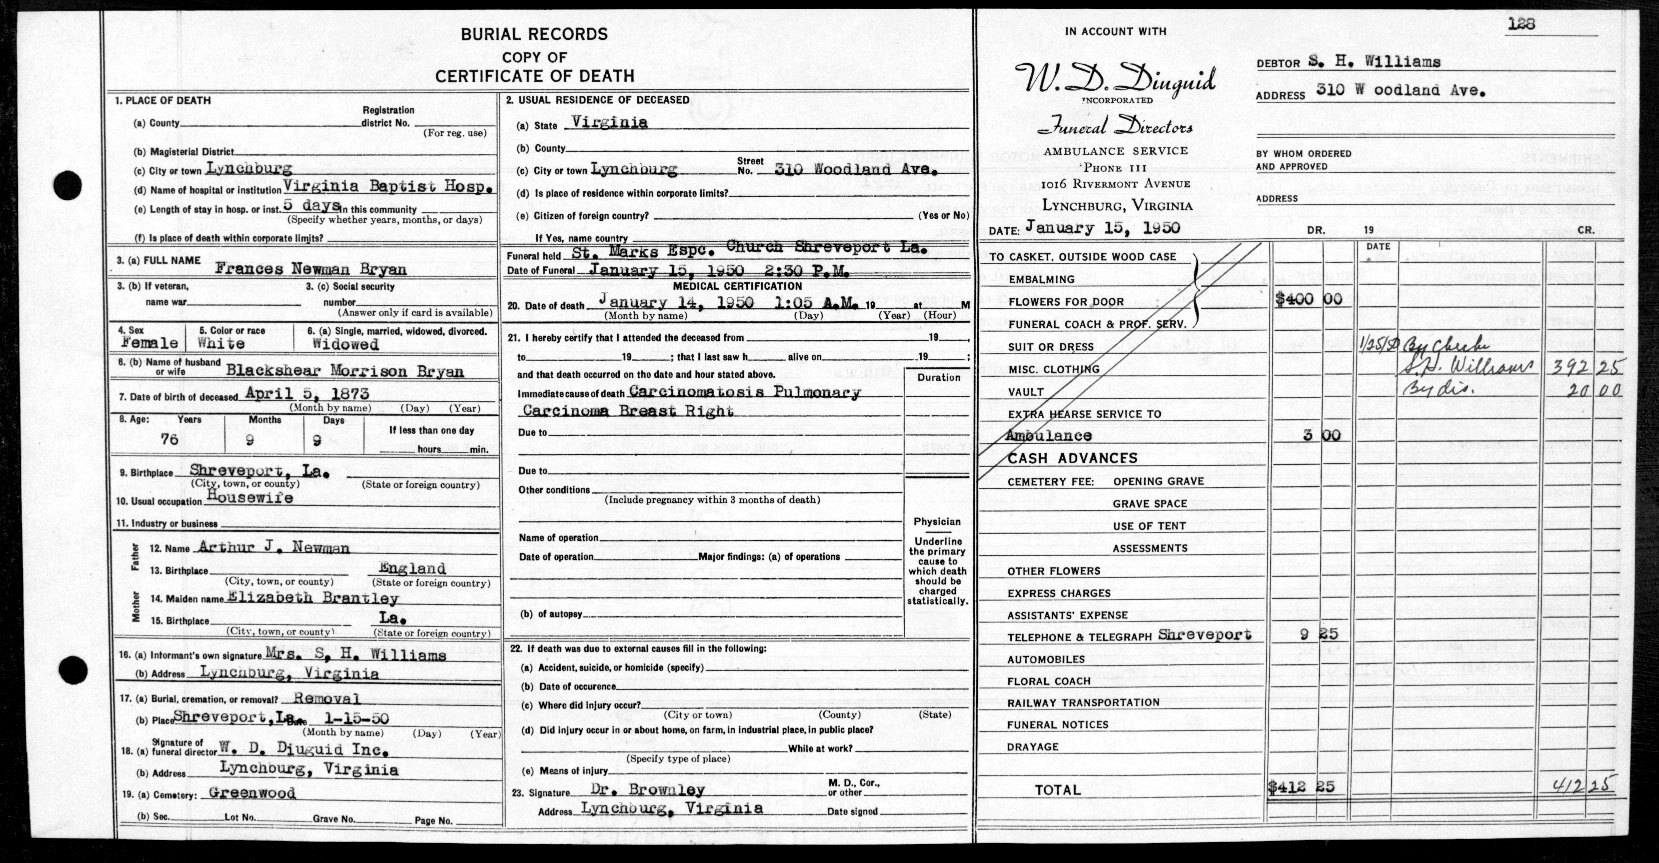 BURIAL RECORDS
COPY OF
CERTIFICATE OF DEATH
1. PLACE OF DEATH
(a) County
Registration
district No.
(For reg. use)
(b) Magisterial District
(c) City or town Lynchburg
(d) Name of hospital or institution Virginia Baptist Hosp.
(e) Length of stay in hosp. or inst. 5 days in this community
(Specify whether years, months, or days)
(f) Is place of death within corporate limits?
3. (a) FULL NAME Frances Newman Bryan
3. (b) If veteran,
name war
3. (c) Social security
number
(Answer only if card is available)
4. Sex
Female
5. Color or race
White
6. (a) Single, married, widowed, divorced.
Widowed
6. (b) Name of husband
or wife Blackshear Morrison Bryan
7. Date of birth of deceased April 5, 1873
(Month by name) (Day) (Year)
8. Age: Years Months Days If less than one day
76 9 9 hours min.
9. Birthplace Shreveport, La.
(City, town, or county) (State or foreign country)
10. Usual occupation Housewife
11. Industry or business
Father
12. Name Arthur J. Newman
13. Birthplace England
(City, town, or county) (State or foreign country)
Mother
14. Maiden name Elizabeth Brantley
15. Birthplace La.
(City, town, or county) (State or foreign country)
16. (a) Informant's own signature Mrs. S, H. Williams
(b) Address Lynchburg, Virginia
17. (a) Burial, cremation, or removal? Removal
(b) Place Shreveport, La. Date 1-15-50
(Month by name) (Day) (Year)
18. (a) Signature of
funeral director W. D. Diuguid Inc.
(b) Address Lynchburg, Virginia
19. (a) Cemetery: Greenwood
(b) Sec. Lot No. Grave No. Page No.
2. USUAL RESIDENCE OF DECEASED
(a) State Virginia
(b) County
(c) City or town Lynchburg Street
No. 310 Woodland Ave.
(d) Is place of residence within corporate limits?
(e) Citizen of foreign country? (Yes or No)
If Yes, name country
Funeral held St. Marks Espc. Church Shreveport La.
Date of Funeral January 15, 1950 2:30 P.M.
MEDICAL CERTIFICATION
20. Date of death January 14, 1950 1:05 A.M. 19 at M
(Month by name) (Day) (Year) (Hour)
21. I hereby certify that I attended the deceased from 19 ,
to 19 ; that I last saw h alive on 19 ;
and that death occurred on the date and hour stated above.
Duration
Immediate cause of death Carcinomatosis Pulmonary
Carcinoma Breast Right
Due to
Due to
Other conditions
(Include pregnancy within 3 months of death)
Name of operation
Date of operation Major findings: (a) of operations
(b) of autopsy
Physician
Underline
the primary
cause to
which death
should be
charged
statistically.
22. If death was due to external causes fill in the following:
(a) Accident, suicide, or homicide (specify)
(b) Date of occurence
(c) Where did injury occur?
(City or town) (County) (State)
(d) Did injury occur in or about home, on farm, in industrial place, in public place?
While at work?
(Specify type of place)
(e) Means of injury
23. Signature Dr. Brownley M. D., Cor.,
or other
Address Lynchburg, Virginia Date signed
128
IN ACCOUNT WITH
W. D. Diuguid
INCORPORATED
Funeral Directors
AMBULANCE SERVICE
PHONE 111
1016 RIVERMONT AVENUE
LYNCHBURG, VIRGINIA
DATE: January 15, 1950
DEBTOR S. H. Williams
ADDRESS 310 W oodland Ave.
BY WHOM ORDERED
AND APPROVED
ADDRESS
DR. 19 CR.
DATE
TO CASKET, OUTSIDE WOOD CASE
EMBALMING
FLOWERS FOR DOOR $400 00
FUNERAL COACH & PROF. SERV.
SUIT OR DRESS 1/25/50 By Check
MISC. CLOTHING S.H. Williams 392 25
VAULT By dis. 20 00
EXTRA HEARSE SERVICE TO
Ambulance 3 00
CASH ADVANCES
CEMETERY FEE: OPENING GRAVE
GRAVE SPACE
USE OF TENT
ASSESSMENTS
OTHER FLOWERS
EXPRESS CHARGES
ASSISTANTS' EXPENSE
TELEPHONE & TELEGRAPH Shreveport 9 25
AUTOMOBILES
FLORAL COACH
RAILWAY TRANSPORTATION
FUNERAL NOTICES
DRAYAGE
TOTAL $412 25 412 25